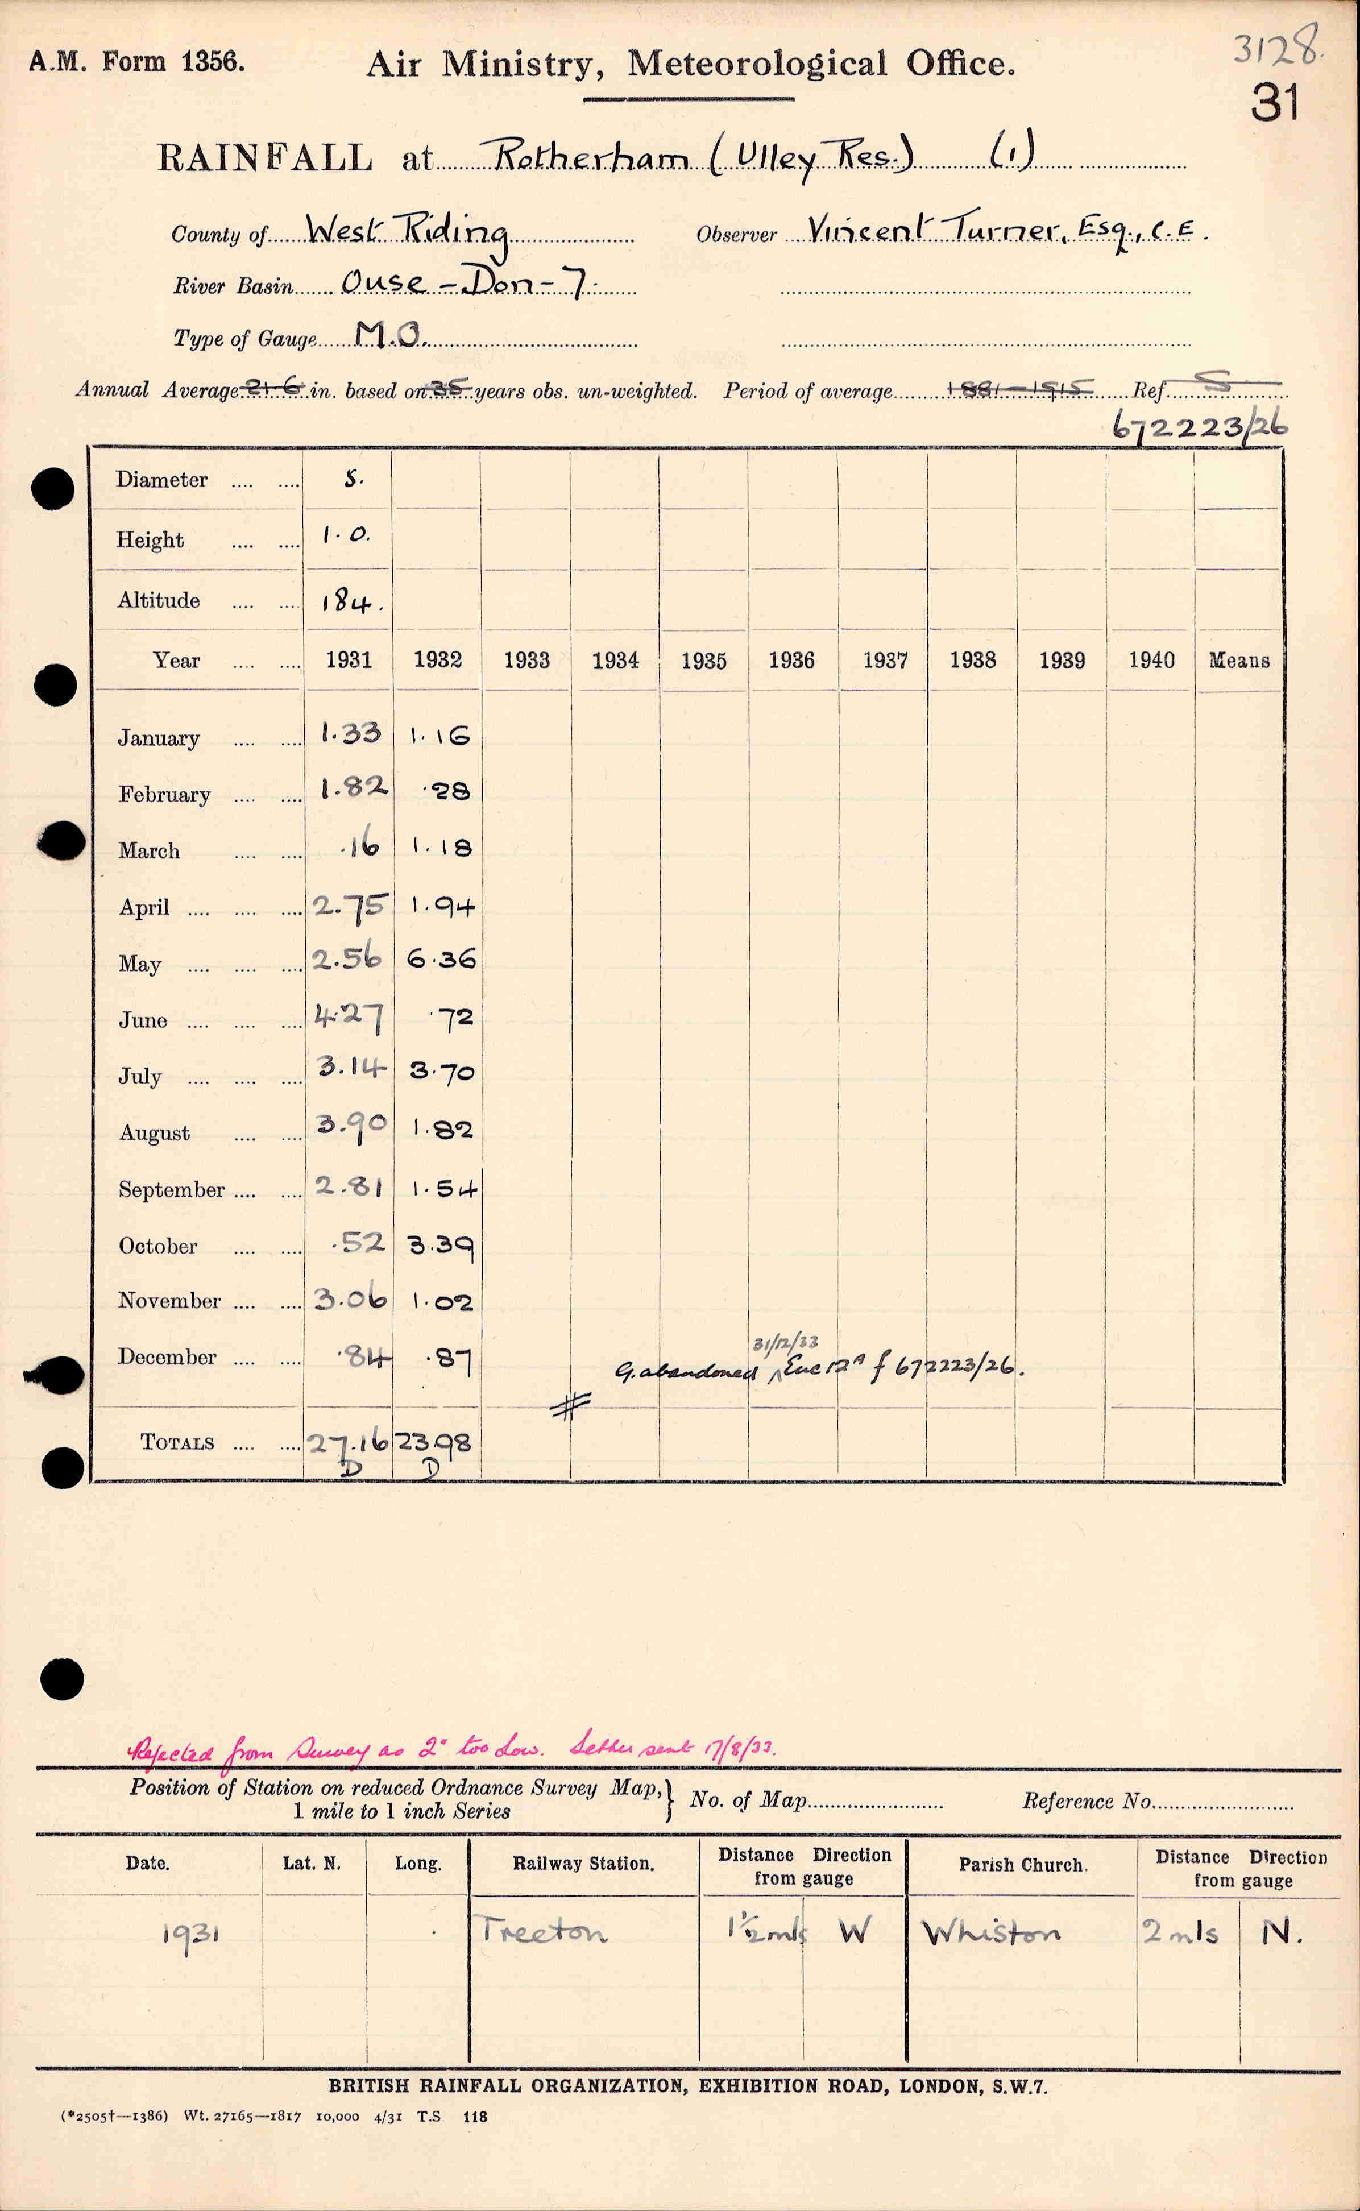 3128.
A.M. Form 1356. Air Ministry, Meteorological Office.
31
RAINFALL at Rotherham (Ulley Res.) (1)
County of West Riding Observer Vincent Turner, Esq., C.E.
River Basin Ouse - Don - 7.
Type of Gauge M.O.
Annual Average 21.6 in. based on 35 years obs. un-weighted. Period of average 1881-1915 Ref. S
672223/26
Diameter .... .... 5.
Height .... .... 1.0.
Altitude .... .... 184.
Year .... .... 1931 1932 1933 1934 1935 1936 1937 1938 1939 1940 Means
January .... .... 1.33 1.16
February .... .... 1.82 .28
March .... .... .16 1.18
April .... .... .... 2.75 1.94
May .... .... .... 2.56 6.36
June .... .... .... 4.27 .72
July .... .... .... 3.14 3.70
August .... .... 3.90 1.82
September .... .... 2.81 1.54
October .... .... .52 3.39
November .... .... 3.06 1.02
31/12/33
December .... .... .84 .87 G. abandoned 672223/26.
TOTALS .... .... 27.16 23.98
D D
Rejected from Survey as 2" too low. Letter sent 17/8/33.
Position of Station on reduced Ordnance Survey Map, } No. of Map Reference No.
1 mile to 1 inch Series
Date. Lat. N. Long. Railway Station. Distance Direction from gauge Parish Church. Distance Direction from gauge
1931 Treeton 1½ mls W Whiston 2 mls N.
BRITISH RAINFALL ORGANIZATION, EXHIBITION ROAD, LONDON, S.W.7.
(*2505†—1386) Wt. 27165—1817 10,000 4/31 T.S 118